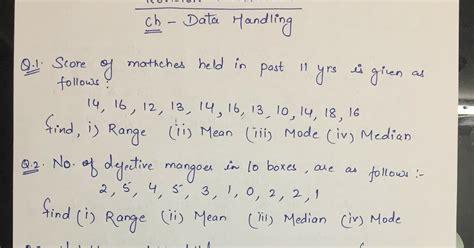 Ch - Data Handling
Q.1. Score of mathches held in past 11 yrs is given as
follows :
14, 16, 12, 13, 14, 16, 13, 10, 14, 18, 16
find, i) Range (ii) Mean (iii) Mode (iv) Median
Q.2. No. of defective mangoes in 10 boxes, are as follows :-
2, 5, 4, 5, 3, 1, 0, 2, 2, 1
find (i) Range (ii) Mean (iii) Median (iv) Mode